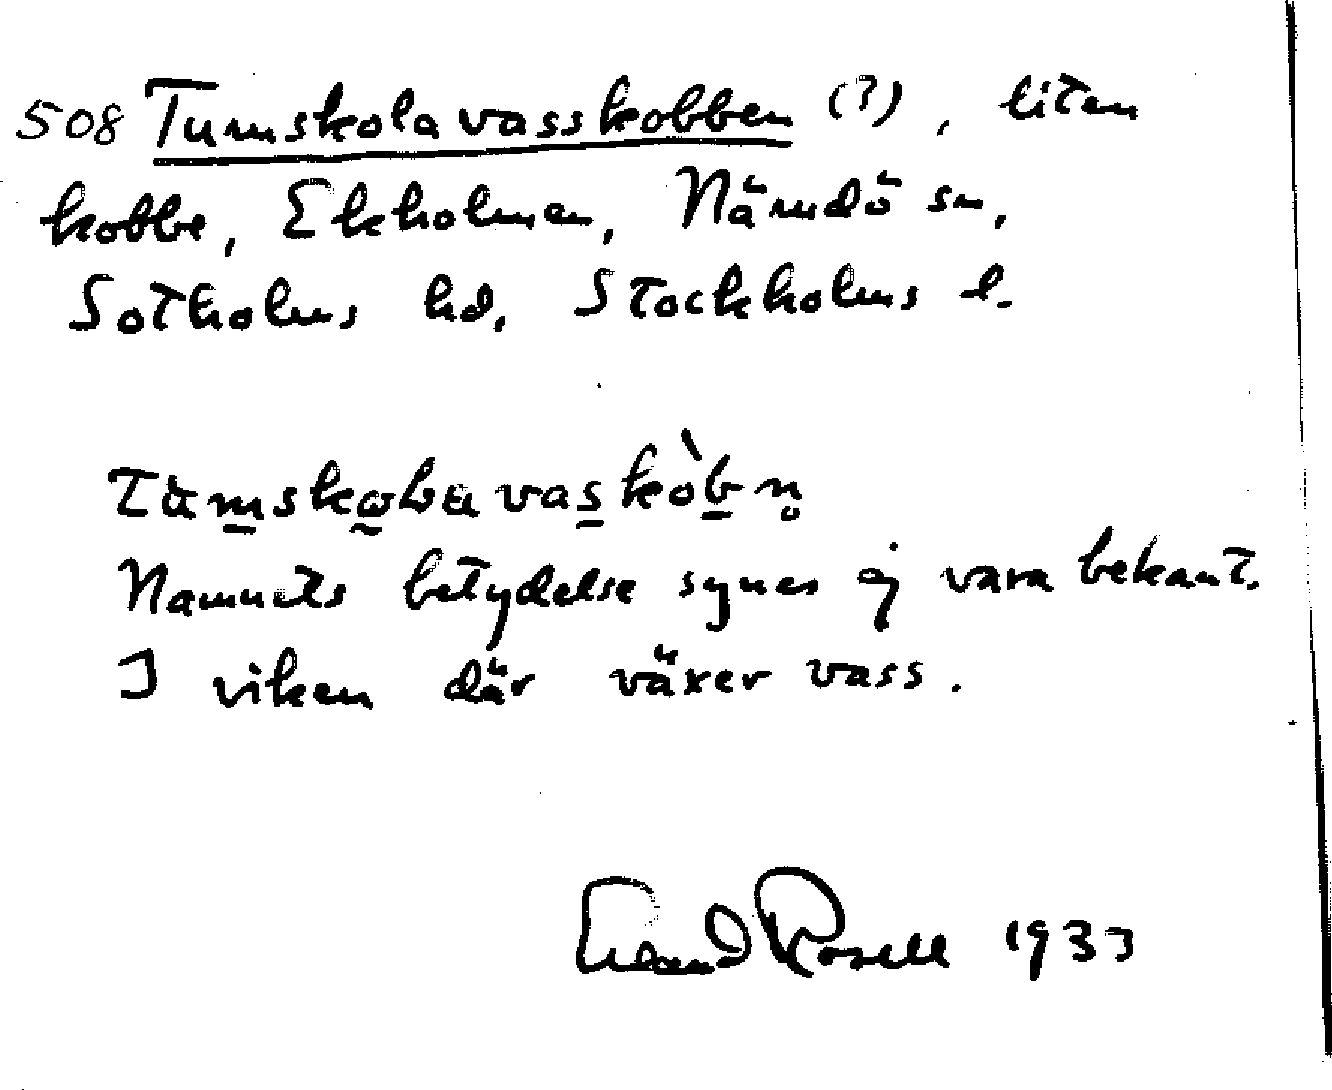 508 Tumskolavasskobben (?), liten
kobbe, Ekholmen, Nämdö sn,
Sotholms hd, Stockholms l.
Namnets betydelse synes ej vara bekant.
I viken där växer vass.
Erland Rosell 1933